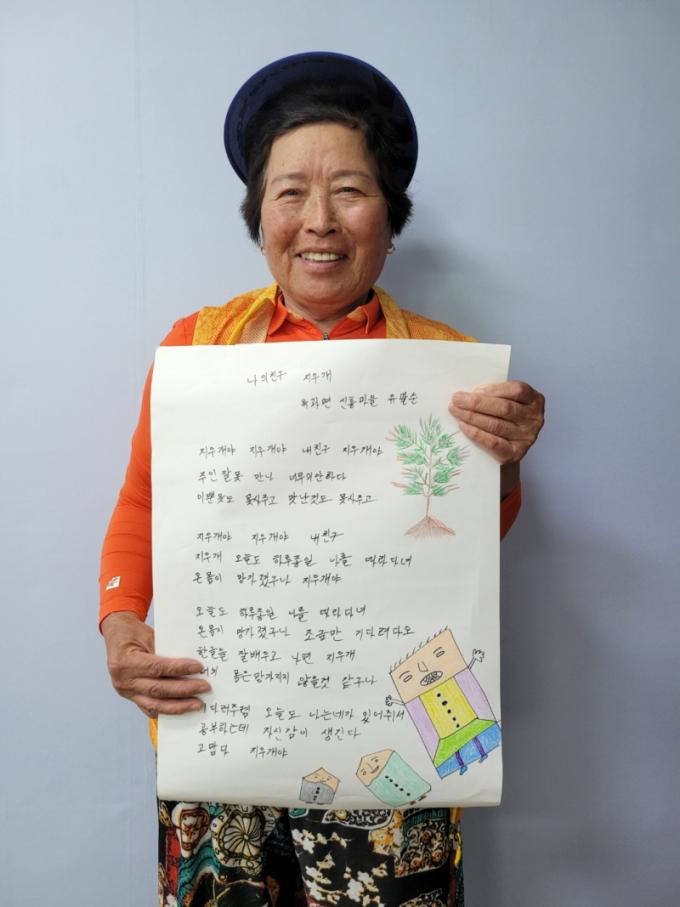 나의친구 지우개
옥과면 신흥마을 유팔순
지우개야 지우개야 내친구 지우개야
주인 잘못 만나 너무미안하다
이쁜옷도 못사주고 맛난것도 못사주고
지우개야 지우개야 내친구
지우개 오늘도 하루종일 나를 따라다녀
온몸이 망가졌구나 지우개야
오늘도 하루종일 나를 따라다녀
온몸이 망가졌구나 조금만 기다려다오
한글을 잘배우고 나면 지우개
너의 몸은망가지지 않을것 같구나
오늘도 나는네가 있어주어
공부하는데 자신감이 생긴다
고맙다 지우개야